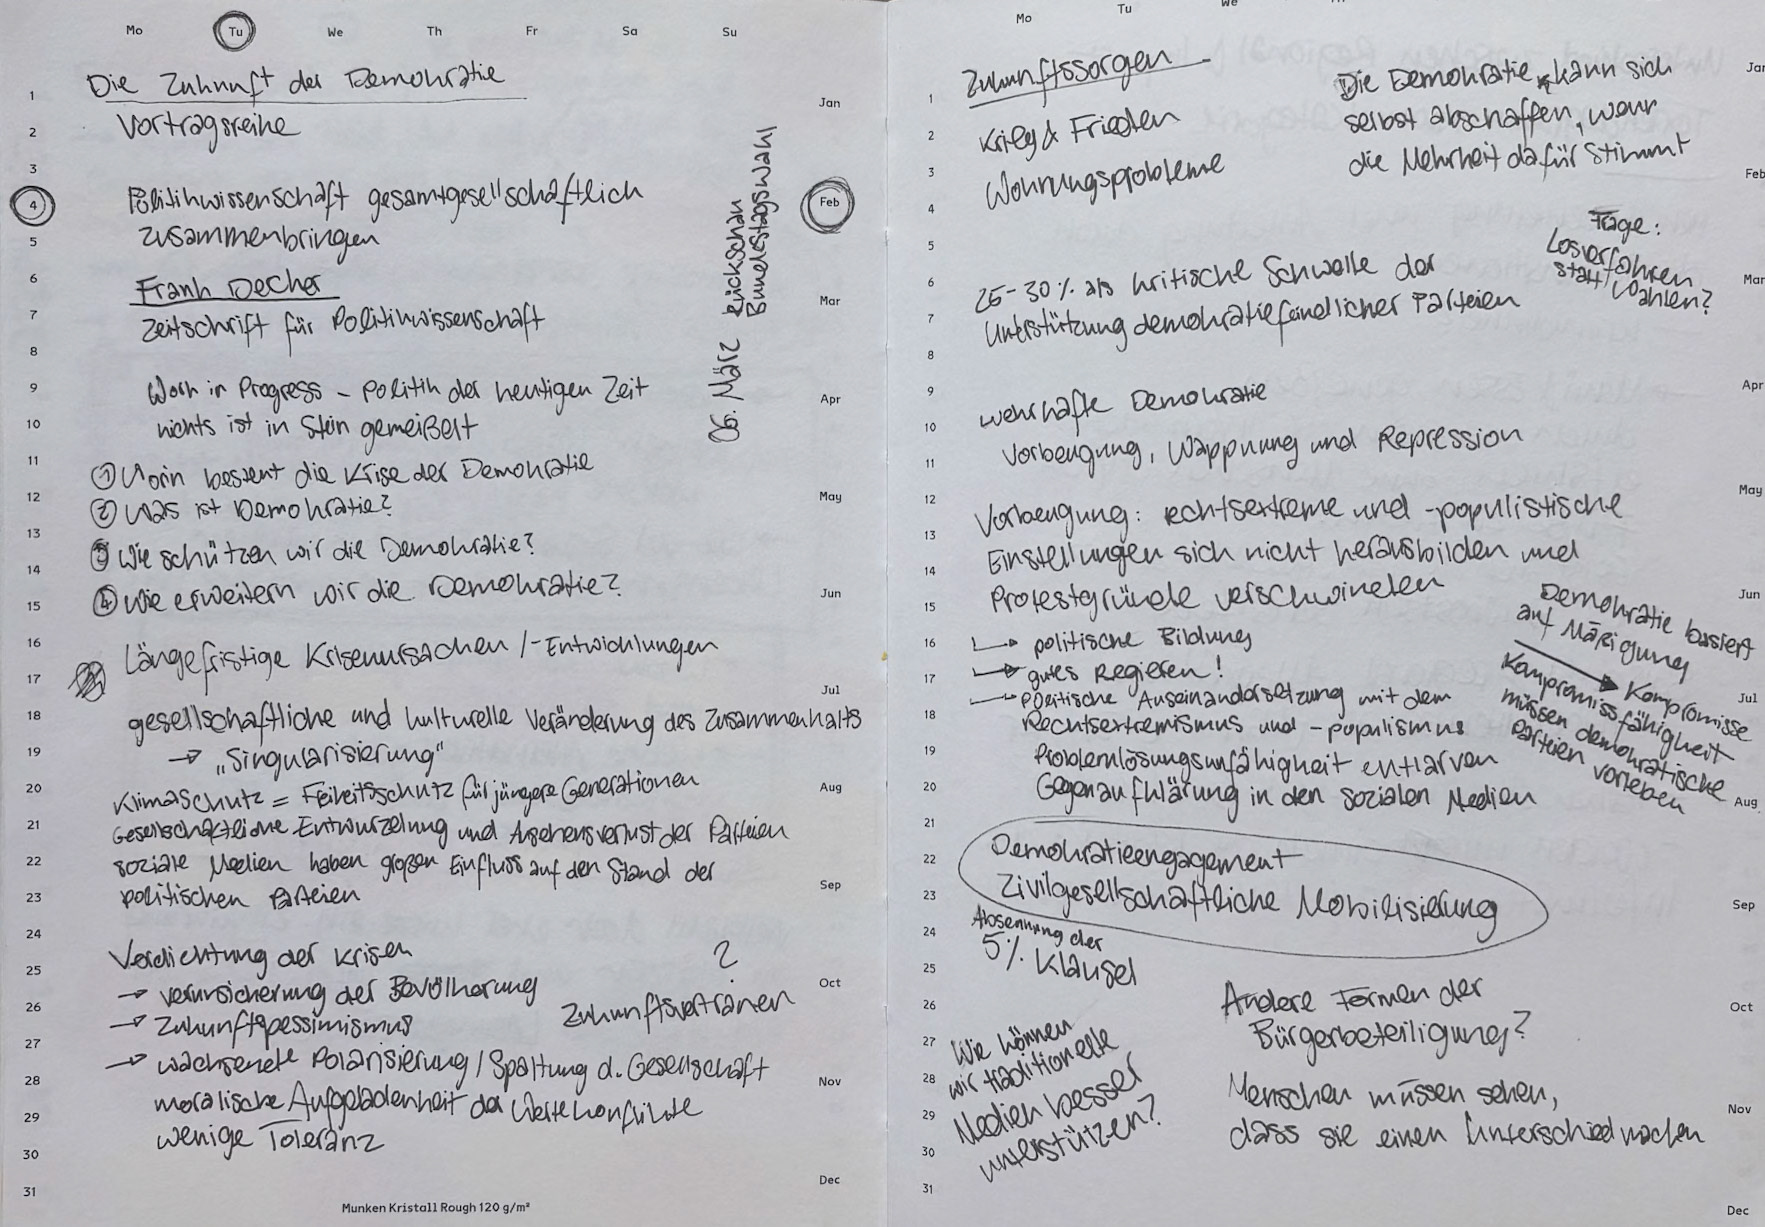 Mo Tu We Th Fr Sa Su
1 2 3 4 5 6 7 8 9 10 11 12 13 14 15 16 17 18 19 20 21 22 23 24 25 26 27 28 29 30 31
Jan Feb Mar Apr May Jun Jul Aug Sep Oct Nov Dec
Die Zukunft der Demokratie
Vortragsreihe
Politikwissenschaft gesamtgesellschaftlich
zusammenbringen
Frank Decker
Zeitschrift für Politikwissenschaft
Work in Progress – Politik der heutigen Zeit
nichts ist in Stein gemeißelt
06. März Rückschau
Bundestagswahl
① Worin besteht die Krise der Demokratie
② Was ist Demokratie?
③ Wie schützen wir die Demokratie?
④ Wie erweitern wir die Demokratie?
Längefristige Krisenursachen /-Entwicklungen
gesellschaftliche und kulturelle Veränderung des Zusammenhalts
→ „Singularisierung"
Klimaschutz = Freiheitsschutz für jüngere Generationen
Gesellschaftliche Entwurzelung und Ansehensverlust der Parteien
soziale Medien haben großen Einfluss auf den Stand der
politischen Parteien
Verdichtung der Krisen
→ verunsicherung der Bevölkerung
→ Zukunftspessimismus
?
Zukunftsvertrauen
→ wachsende Polarisierung / Spaltung d. Gesellschaft
moralische Aufgeladenheit der Wertekonflikte
wenige Toleranz
Munken Kristall Rough 120 g/m²
Mo Tu We
1 2 3 4 5 6 7 8 9 10 11 12 13 14 15 16 17 18 19 20 21 22 23 24 25 26 27 28 29 30 31
Jan Feb Mar Apr May Jun Jul Aug Sep Oct Nov Dec
Zukunftssorgen
Krieg & Frieden
Wohnungsprobleme
Die Demokratie kann sich
selbst abschaffen, wenn
die Mehrheit dafür stimmt
Frage:
Losverfahren
statt Wahlen?
25-30% als kritische Schwelle der
Unterstützung demokratiefeindlicher Parteien
wehrhafte Demokratie
Vorbeugung, Wappnung und Repression
Vorbeugung: rechtsextreme und -populistische
Einstellungen sich nicht herausbilden und
Protestgründe verschwinden
→ politische Bildung
→ gutes Regieren!
→ politische Auseinandersetzung mit dem
Rechtsextremismus und -populismus
Problemlösungsunfähigkeit entlarven
Gegenaufklärung in den sozialen Medien
Demokratie basiert
auf Mäßigung
→ Kompromisse
Kompromissfähigkeit
müssen demokratische
Parteien vorleben
Demokratieengagement
Zivilgesellschaftliche Mobilisierung
Absenkung der
5% Klausel
Andere Formen der
Bürgerbeteiligung?
Wie können
wir traditionelle
Medien besser
unterstützen?
Menschen müssen sehen,
dass sie einen Unterschied machen